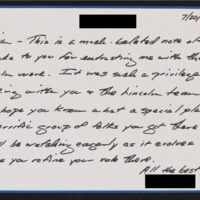 7/20/
- This is a much-belated note of
to you for entrusting me with the
work. It was such a privilege
ing with you & the Lincoln team
hope you know what a special place
terrific group of folks you got there
ll be watching eagerly as it evolves
as you refine your role there.
All the best